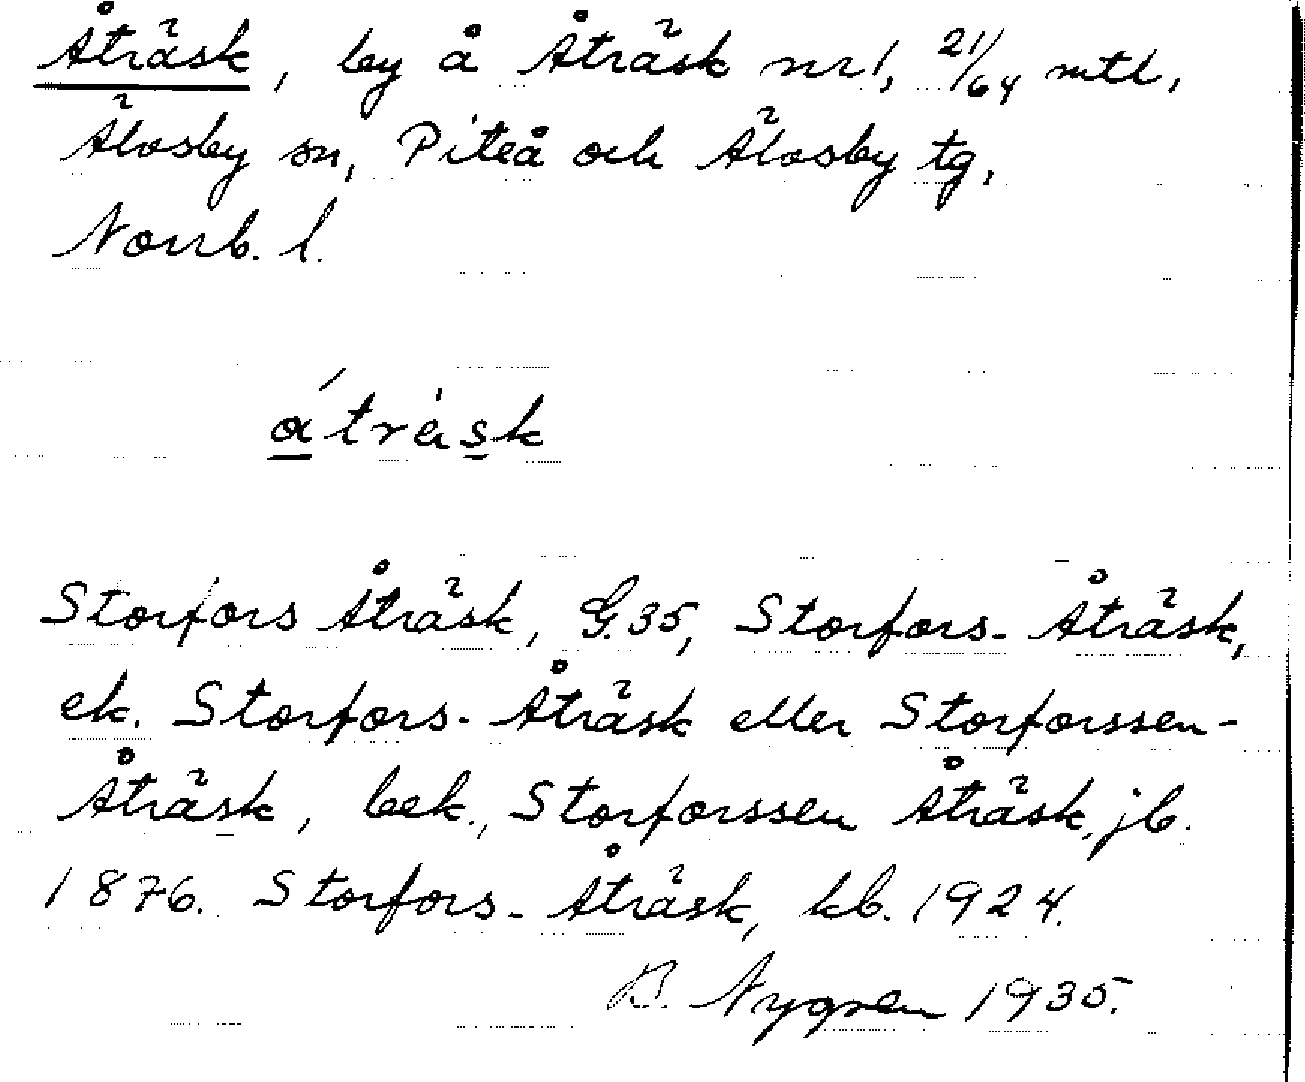 Åträsk, by å Åträsk nr 1, 21/64 mtl,
Älvsby sn, Piteå och Älvsby tg,
Norrb. l.
átràsk
Storfors Åträsk, G.35, Storfors-Åträsk,
ek. Storfors-Åträsk eller Storforssen-
Åträsk, bek., Storforssen Åträsk, jb.
1876. Storfors-Åträsk, kb. 1924.
B. Nygren 1935.